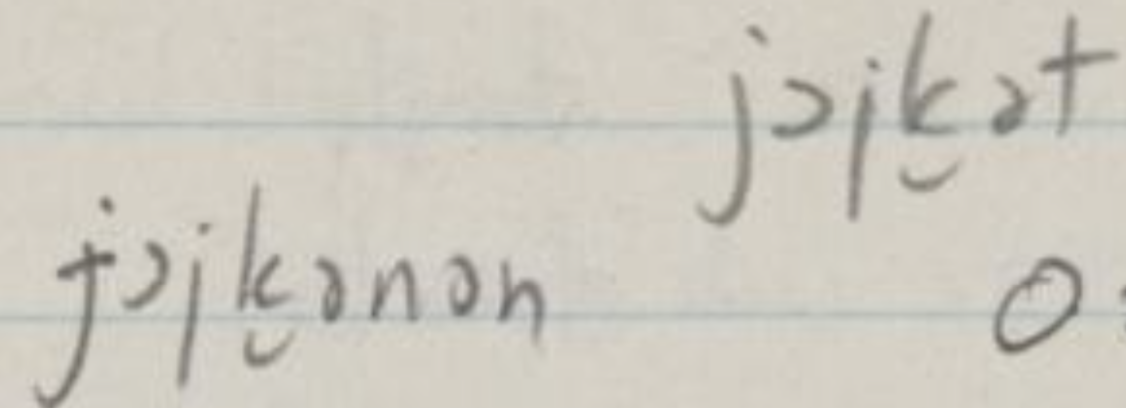 jɔjk̮ət
jɔjk̮ənən o